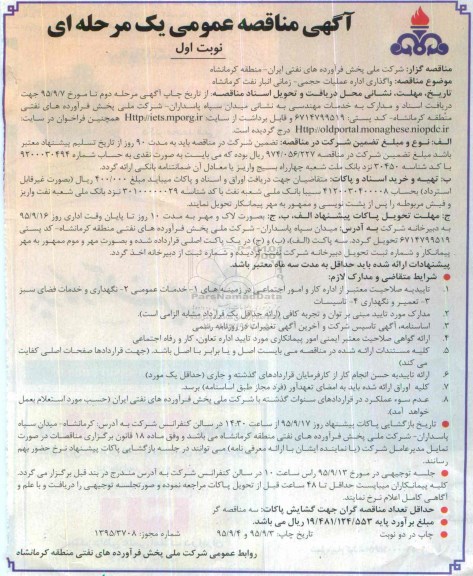 آگهی مناقصه عمومی یک مرحله ای
نوبت اول
مناقصه گزار: شرکت ملی پخش فرآورده های نفتی ایران- منطقه کرمانشاه
موضوع مناقصه: واگذاری اداره عملیات حجمی- زمانی انبار نفت کرمانشاه
تاریخ، مهلت، نشانی محل دریافت و تحویل اسناد مناقصه: از تاریخ چاپ آگهی مرحله دوم تا مورخ ۹۵/۹/۷ جهت
دریافت اسناد و مدارک به خدمات مهندسی به نشانی میدان سپاه پاسداران- شرکت ملی پخش فرآورده های نفتی
منطقه کرمانشاه- کد پستی: ۶۷۱۴۷۹۹۵۱۹ و قابل برداشت از سایت: Http://iets.mporg.ir همچنین فراخوان در سایت:
Http://oldportal.monaghese.niopdc.ir درج گردیده است.
الف: نوع و مبلغ تضمین شرکت در مناقصه: تضمین شرکت در مناقصه باید به مدت ۹۰ روز از تاریخ تسلیم پیشنهاد معتبر
باشد مبلغ تضمین شرکت در مناقصه ۹۷۴/۰۵۶/۲۲۷ ریال بوده که می بایست به صورت نقدی به حساب شماره ۹۳۰۰۰۳۰۴۹۴
با کد شناسه ۳۰۴۵۰ نزد بانک ملت شعبه چهارراه بسیج واریز یا معادل آن ضمانتنامه بانکی ارائه گردد.
ب: تهیه و خرید اسناد و پاکات: متقاضیان جهت دریافت اوراق و اسناد و پاکات میباید مبلغ ۴۰۰/۰۰۰ ریال (بصورت غیرقابل
استرداد) بحساب ۴۱۲۰۰۳۰۲۰۰۰۸ سیبا بانک ملی شعبه نفت با کد شناسه ۳۰۱۰۰۰۰۰۰۲۹ نزد بانک ملی شعبه نفت واریز
و فیش مربوطه را پس از پشت نویسی و ممهور به مهر پیمانکار تحویل نمایند.
ج: مهلت تحویل پاکات پیشنهاد الف، ب، ج: بصورت لاک و مهر به مدت ۱۰ روز تا پایان وقت اداری روز ۹۵/۹/۱۶
به دبیرخانه شرکت به آدرس: میدان سپاه پاسداران- شرکت ملی پخش فرآورده های نفتی منطقه کرمانشاه- کد پستی
۶۷۱۴۷۹۹۵۱۹ تحویل گردد. سه پاکت (الف)، (ب)، و (ج) در یک پاکت اصلی قرارداده شده و بصورت مهر و موم ممهور به مهر
پیمانکار و شماره ثبت تحویل دبیرخانه شرکت تعیین گردیده و شماره ثبت از دبیرخانه اخذ گردد.
پیشنهادات ارائه شده باید حداقل به مدت سه ماه معتبر باشد.
شرایط متقاضی و مدارک لازم:
۱. تاییدیه صلاحیت معتبر از اداره کار و امور اجتماعی در زمینه های ۱- خدمات عمومی ۲- نگهداری و خدمات فضای سبز
۳- تعمیر و نگهداری ۴- تاسیسات
۲. مدارک مورد تایید مبنی بر توان و تجربه کافی (ارائه حداقل یک قرارداد مشابه الزامی است).
۳. اساسنامه، آگهی تاسیس شرکت و آخرین آگهی تغییرات در روزنامه رسمی
۴. ارائه گواهی صلاحیت معتبر ایمنی امور پیمانکاری مورد تایید اداره تعاون، کار و رفاه اجتماعی
۵. کلیه مستندات ارائه شده در مناقصه می بایست اصل و یا برابر با اصل باشد. (جهت قراردادها صفحات اصلی کفایت
می کند)
۶. ارائه تاییدیه حسن انجام کار از کارفرمایان قراردادهای گذشته و جاری (حداقل یک مورد)
۷. کلیه اوراق ارائه شده باید به امضای تعهدآور (فرد مجاز طبق اساسنامه) برسد.
۸. عدم سوء عملکرد در قراردادهای سنوات گذشته با شرکت ملی پخش فرآورده های نفتی ایران (حسب مورد استعلام بعمل
خواهد آمد).
تاریخ بازگشایی پاکات پیشنهاد روز ۹۵/۹/۱۷ از ساعت ۱۴:۳۰ در سالن کنفرانس شرکت به آدرس: کرمانشاه- میدان سپاه
پاسداران- شرکت ملی پخش فرآورده های نفتی منطقه کرمانشاه می باشد و وفق ماده ۱۸ قانون برگزاری مناقصات در صورت
تمایل مدیرعامل شرکت (یا نماینده ایشان با ارائه معرفی نامه) می توانند در جلسه بازگشایی پاکات پیشنهاد نرخ حضور بهم
رسانند.
جلسه توجیهی در مورخ ۹۵/۹/۱۳ راس ساعت ۱۰ در سالن کنفرانس شرکت به آدرس مندرج در بند قبل برگزار می گردد.
کلیه پیمانکاران میبایست حداقل تا ۴۸ ساعت قبل از تحویل پاکات مراجعه نموده و صورتجلسه توجیهی را دریافت و با علم و
آگاهی کامل اعلام نرخ نمایند.
حداقل تعداد مناقصه گران جهت گشایش پاکات: سه مناقصه گر
مبلغ برآورد پایه ۱۹/۴۸۱/۱۲۴/۵۵۳ ریال می باشد.
چاپ در دو نوبت تاریخ چاپ: ۹۵/۹/۳ و ۹۵/۹/۴ شماره مجوز: ۱۳۹۵/۳۷۰۸
روابط عمومی شرکت ملی پخش فرآورده های نفتی منطقه کرمانشاه
ParsNamadData